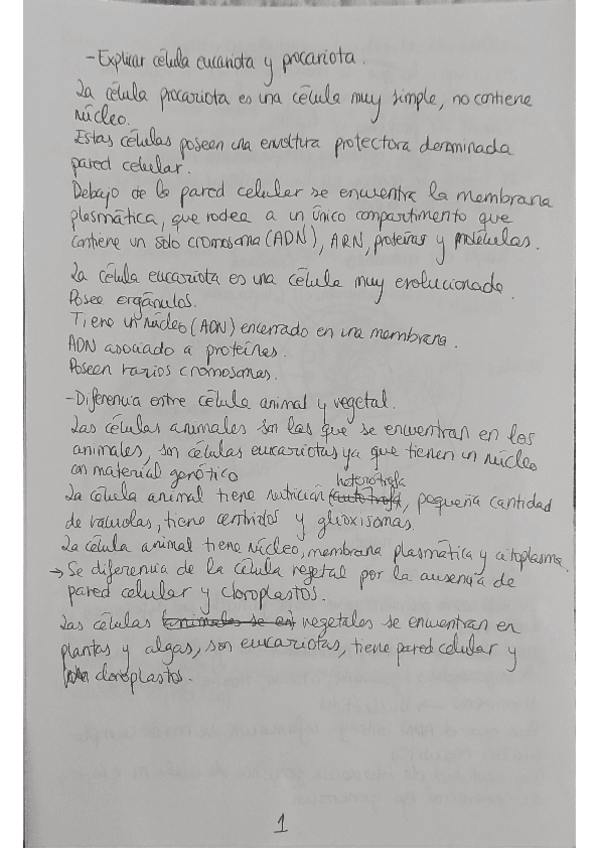 - Explicar célula eucariota y procariota.
La célula procariota es una célula muy simple, no contiene
núcleo.
Estas células poseen una envoltura protectora denominada
pared celular.
Debajo de la pared celular se encuentra la membrana
plasmática, que rodea a un único compartimento que
contiene un solo cromosoma (ADN), ARN, proteínas y moléculas.
La célula eucariota es una célula muy evolucionada.
Posee orgánulos.
Tiene un núcleo (ADN) encerrado en una membrana.
ADN asociado a proteínas.
Poseen varios cromosomas.
- Diferencia entre célula animal y vegetal.
Las células animales son las que se encuentran en los
animales, son células eucariotas ya que tienen un núcleo
con material genético
heterótrofa
La célula animal tiene nutrición (autótrofa), pequeña cantidad
de vacuolas, tiene centriolos y glioxisomas.
La célula animal tiene núcleo, membrana plasmática y citoplasma.
→ Se diferencia de la célula vegetal por la ausencia de
pared celular y cloroplastos.
Las células (animales se en) vegetales se encuentran en
plantas y algas, son eucariotas, tiene pared celular y
cloroplastos.
1